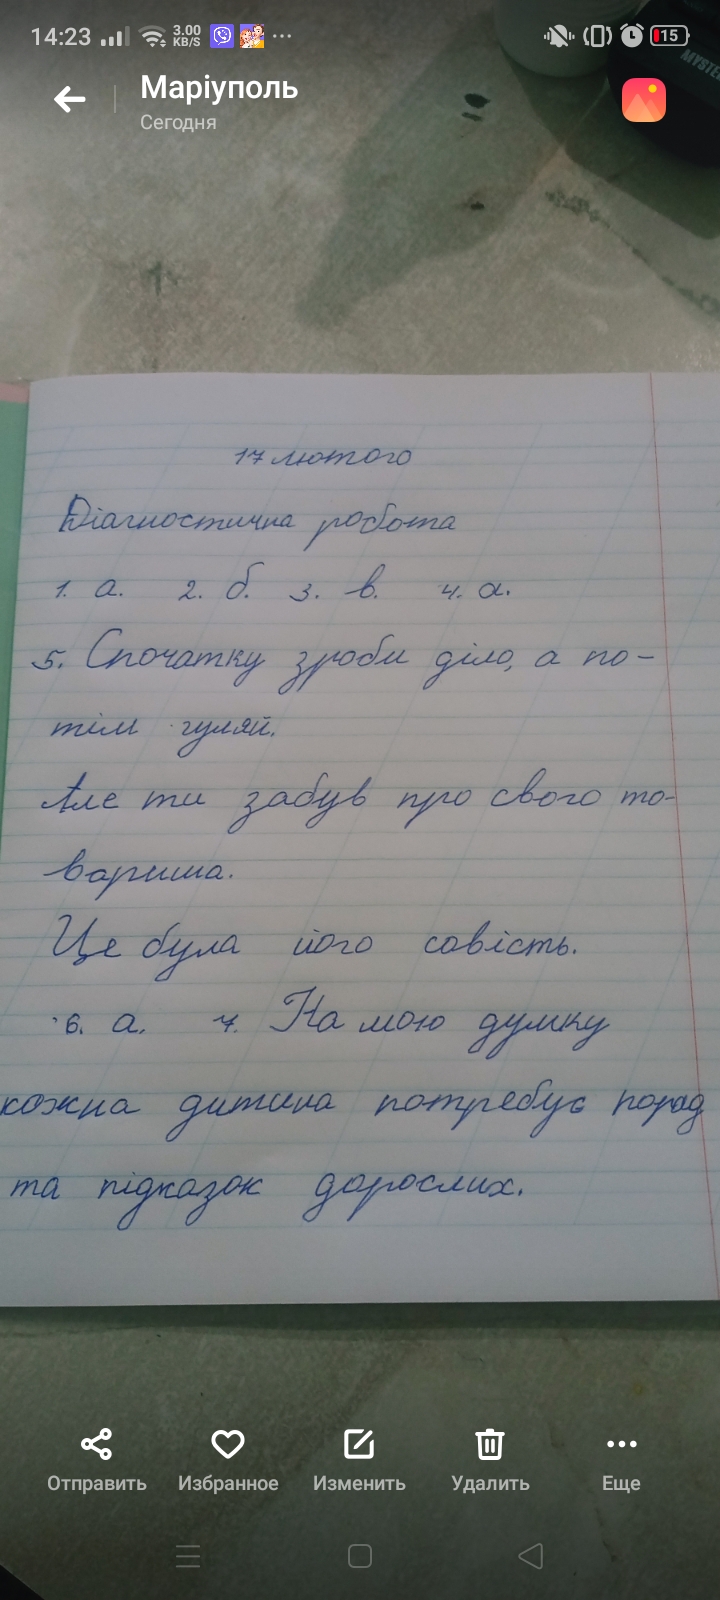 14:23 3.00 KB/S 15
Маріуполь
Сегодня
MYSTE
17 лютого
Діагностична робота
1. а. 2. б. 3. в. 4. а.
5. Спочатку зроби діло, а по-
тім гуляй.
Але ти забув про свого то-
вариша.
Це була його совість.
6. а. 7. На мою думку
кожна дитина потребує порад
та підказок дорослих.
Отправить Избранное Изменить Удалить Еще